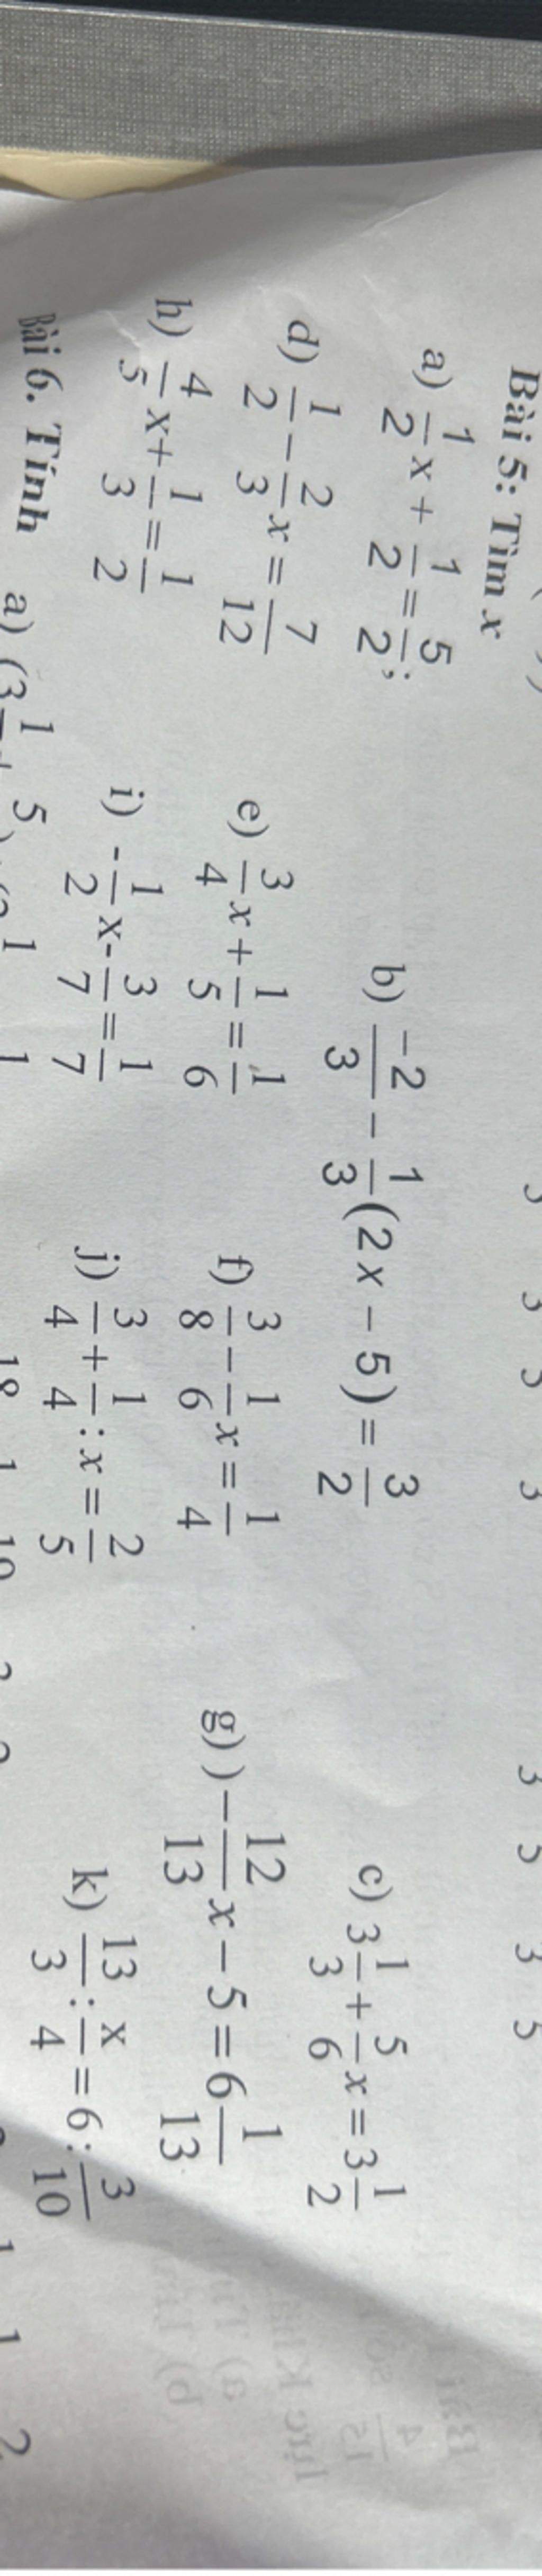 Bài 5: Tìm x
a) 1/2 x + 1/2 = 5/2; b) -2/3 - 1/3 (2x - 5) = 3/2 c) 3 1/3 + 5/6 x = 3 1/2
d) 1/2 - 2/3 x = 7/12 e) 3/4 x + 1/5 = 1/6 f) 3/8 - 1/6 x = 1/4 g) ) - 12/13 x - 5 = 6 1/13
h) 4/5 x + 1/3 = 1/2 i) - 1/2 x - 3/7 = 1/7 j) 3/4 + 1/4 : x = 2/5 k) 13/3 : x/4 = 6 : 3/10
Bài 6. Tính a) (3 1